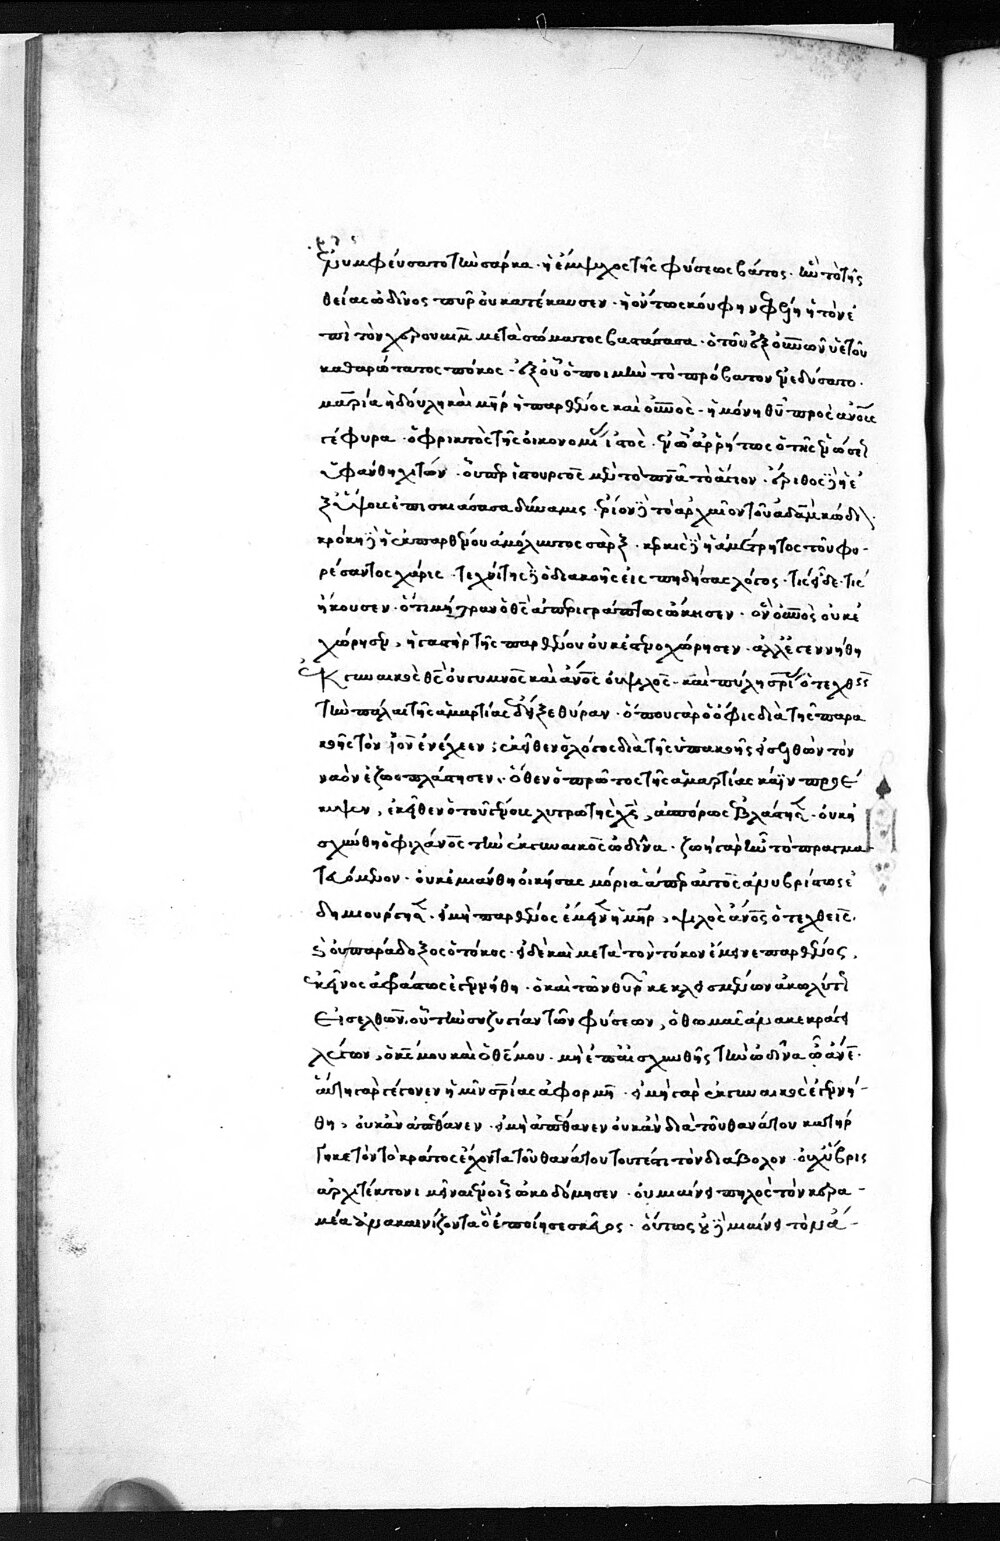 ἐνυμφεύσατο τὴν σάρκα · ἡ ἔμψυχος τῆς φύσεως βάτος · ἣν τὸ τῆς
θείας ὠδῖνος πῦρ οὐ κατέκαυσεν · ἡ ὄντως κούφη νεφέλη ἡ τὸν ἐ
πὶ τῶν χερουβὶμ μετὰ σώματος βαστάσασα · ὁ τοῦ ἐξ οὐνῶν ὑετοῦ
καθαρώτατος πόκος · ἐξ οὗ ὁ ποιμὴν τὸ πρόβατον ἐνεδύσατο ·
μαρία ἡ δούλη καὶ μηρ ἡ παρθένος καὶ οὐνός · ἡ μόνη θῦ πρὸς ἀνους
γέφυρα · ὁ φρικτὸς τῆς οἰκονομίας ἱστός · ἐν ᾧ ἀρρήτως ὁ τῆς ἑνώσεως
ὑφάνθη χιτών · οὗπερ ἱστουργὸς μὲν τὸ πνᾶ τὸ ἅγιον · ἔριθος δὲ ἡ ἐ
ξ ὕψους ἐπισκιάσασα δύναμις · ἔριον δὲ τὸ ἀρχαῖον τοῦ ἀδὰμ κώδιον ·
κρόκη δὲ ἡ ἐκ παρθένου ἀμόλυντος σάρξ · κερκὶς δὲ ἡ ἀμέτρητος τοῦ φο-
ρέσαντος χάρις · τεχνίτης δὲ ὁ δι ἀκοῆς εἰσπηδήσας λόγος · τίς εἶδε · τίς
ἤκουσεν · ὅτι μήτραν ὁ θς ἀπεριγράπτως ᾤκησεν · ὃν οὐνὸς οὐκ ἐ
χώρησεν, ἡ γαστὴρ τῆς παρθένου οὐκ ἐστενοχώρησεν · ἀλλ ἐγεννήθη
ἐκ γυναικὸς θς οὐ γυμνὸς καὶ ἀνος οὐ ψιλός · καὶ πύλην σρίας ὁ τεχθεὶς
τὴν πάλαι τῆς ἁμαρτίας ἔδειξε θύραν · ὅπου γὰρ ὁ ὄφις διὰ τῆς παρα
κοῆς τὸν ἰὸν ἐνέχεεν ; ἐκεῖθεν ὁ λόγος διὰ τῆς ὑπακοῆς εἰσελθὼν τὸν
ναὸν ἐζωοπλάστησεν · ὅθεν ὁ πρῶτος τῆς ἁμαρτίας κάϊν προέ
κυψεν, ἐκεῖθεν ὁ τοῦ γένους λυτρωτὴς χς, ἀσπόρως ἐβλάστησεν · οὐκ ἠ
σχύνθη ὁ φιλάνος τὴν ἐκ γυναικὸς ὠδῖνα · ζωὴ γὰρ ἦν τὸ πραγμα
τευόμενον · οὐκ ἐμιάνθη οἰκήσας μόρια ἅπερ αὐτὸς ἀνυβρίστως ἐ
δημιούργησεν · εἰ μὴ παρθένος ἔμεινεν ἡ μηρ, ψιλὸς ἀνος ὁ τεχθείς,
καὶ οὐ παράδοξος ὁ τόκος · εἰ δὲ καὶ μετὰ τὸν τόκον ἔμεινε παρθένος,
ἐκεῖνος ἀφράστως ἐγεννήθη · ὁ καὶ τῶν θυρῶν κεκλεισμένων ἀκωλύτως
εἰσελθών · οὗ τὴν συζυγίαν τῶν φύσεων, ὁ θωμᾶς ἀνακέκραγε
λέγων, ὁ κς μου καὶ ὁ θς μου · μὴ ἐπαισχυνθῇς τὴν ὠδῖνα ὦ ἀνε ·
αὕτη γὰρ γέγονεν ἡμῖν σρίας ἀφορμή · εἰ μὴ γὰρ ἐκ γυναικὸς ἐγεννή-
θη, οὐκ ἂν ἀπέθανεν · εἰ μὴ ἀπέθανεν οὐκ ἂν διὰ τοῦ θανάτου κατήρ
γησε τὸν τὸ κράτος ἔχοντα τοῦ θανάτου τουτέστι τὸν διάβολον · οὐχ ὕβρις
ἀρχιτέκτονι μεῖναι ἐν οἷς ᾠκοδόμησεν · οὐ μιαίνει πηλὸς τὸν κερα-
μέα ἀνακαινίζοντα ὃ ἐποίησε σκεῦος · οὕτως οὐδὲ μιαίνει τὸν ἄ-